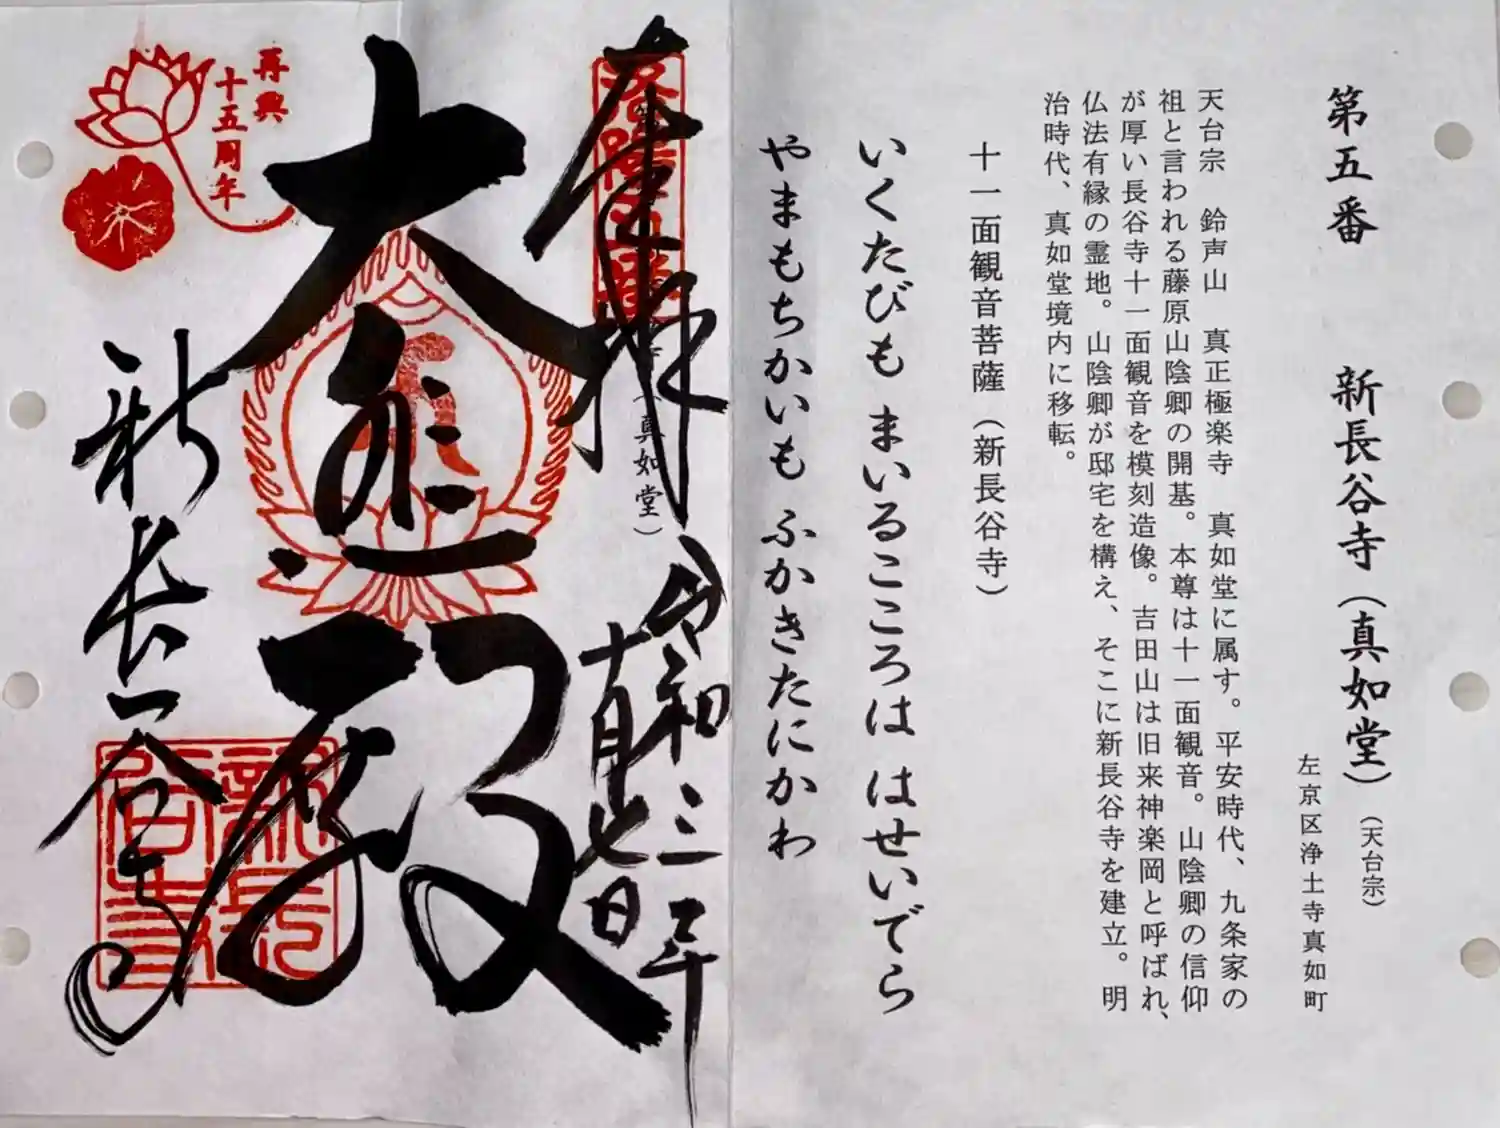 第五番 新長谷寺(真如堂)(天台宗)
左京区浄土寺真如町
天台宗 鈴声山 真正極楽寺 真如堂に属す。平安時代、九条家の
祖と言われる藤原山陰卿の開基。本尊は十一面観音。山陰卿の信仰
が厚い長谷寺十一面観音を模刻造像。吉田山は旧来神楽岡と呼ばれ、
仏法有縁の霊地。山陰卿が邸宅を構え、そこに新長谷寺を建立。明
治時代、真如堂境内に移転。
十一面観音菩薩(新長谷寺)
いくたびも まいるこころは はせいでら
やまもちかいも ふかきたにかわ
奉拝
(真如堂)
令和三年
十月七日
大悲殿
新長谷寺
再興
十五周年
新長谷寺